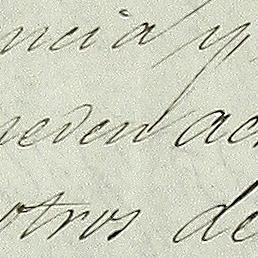 ncia y
ueden ac
otros de